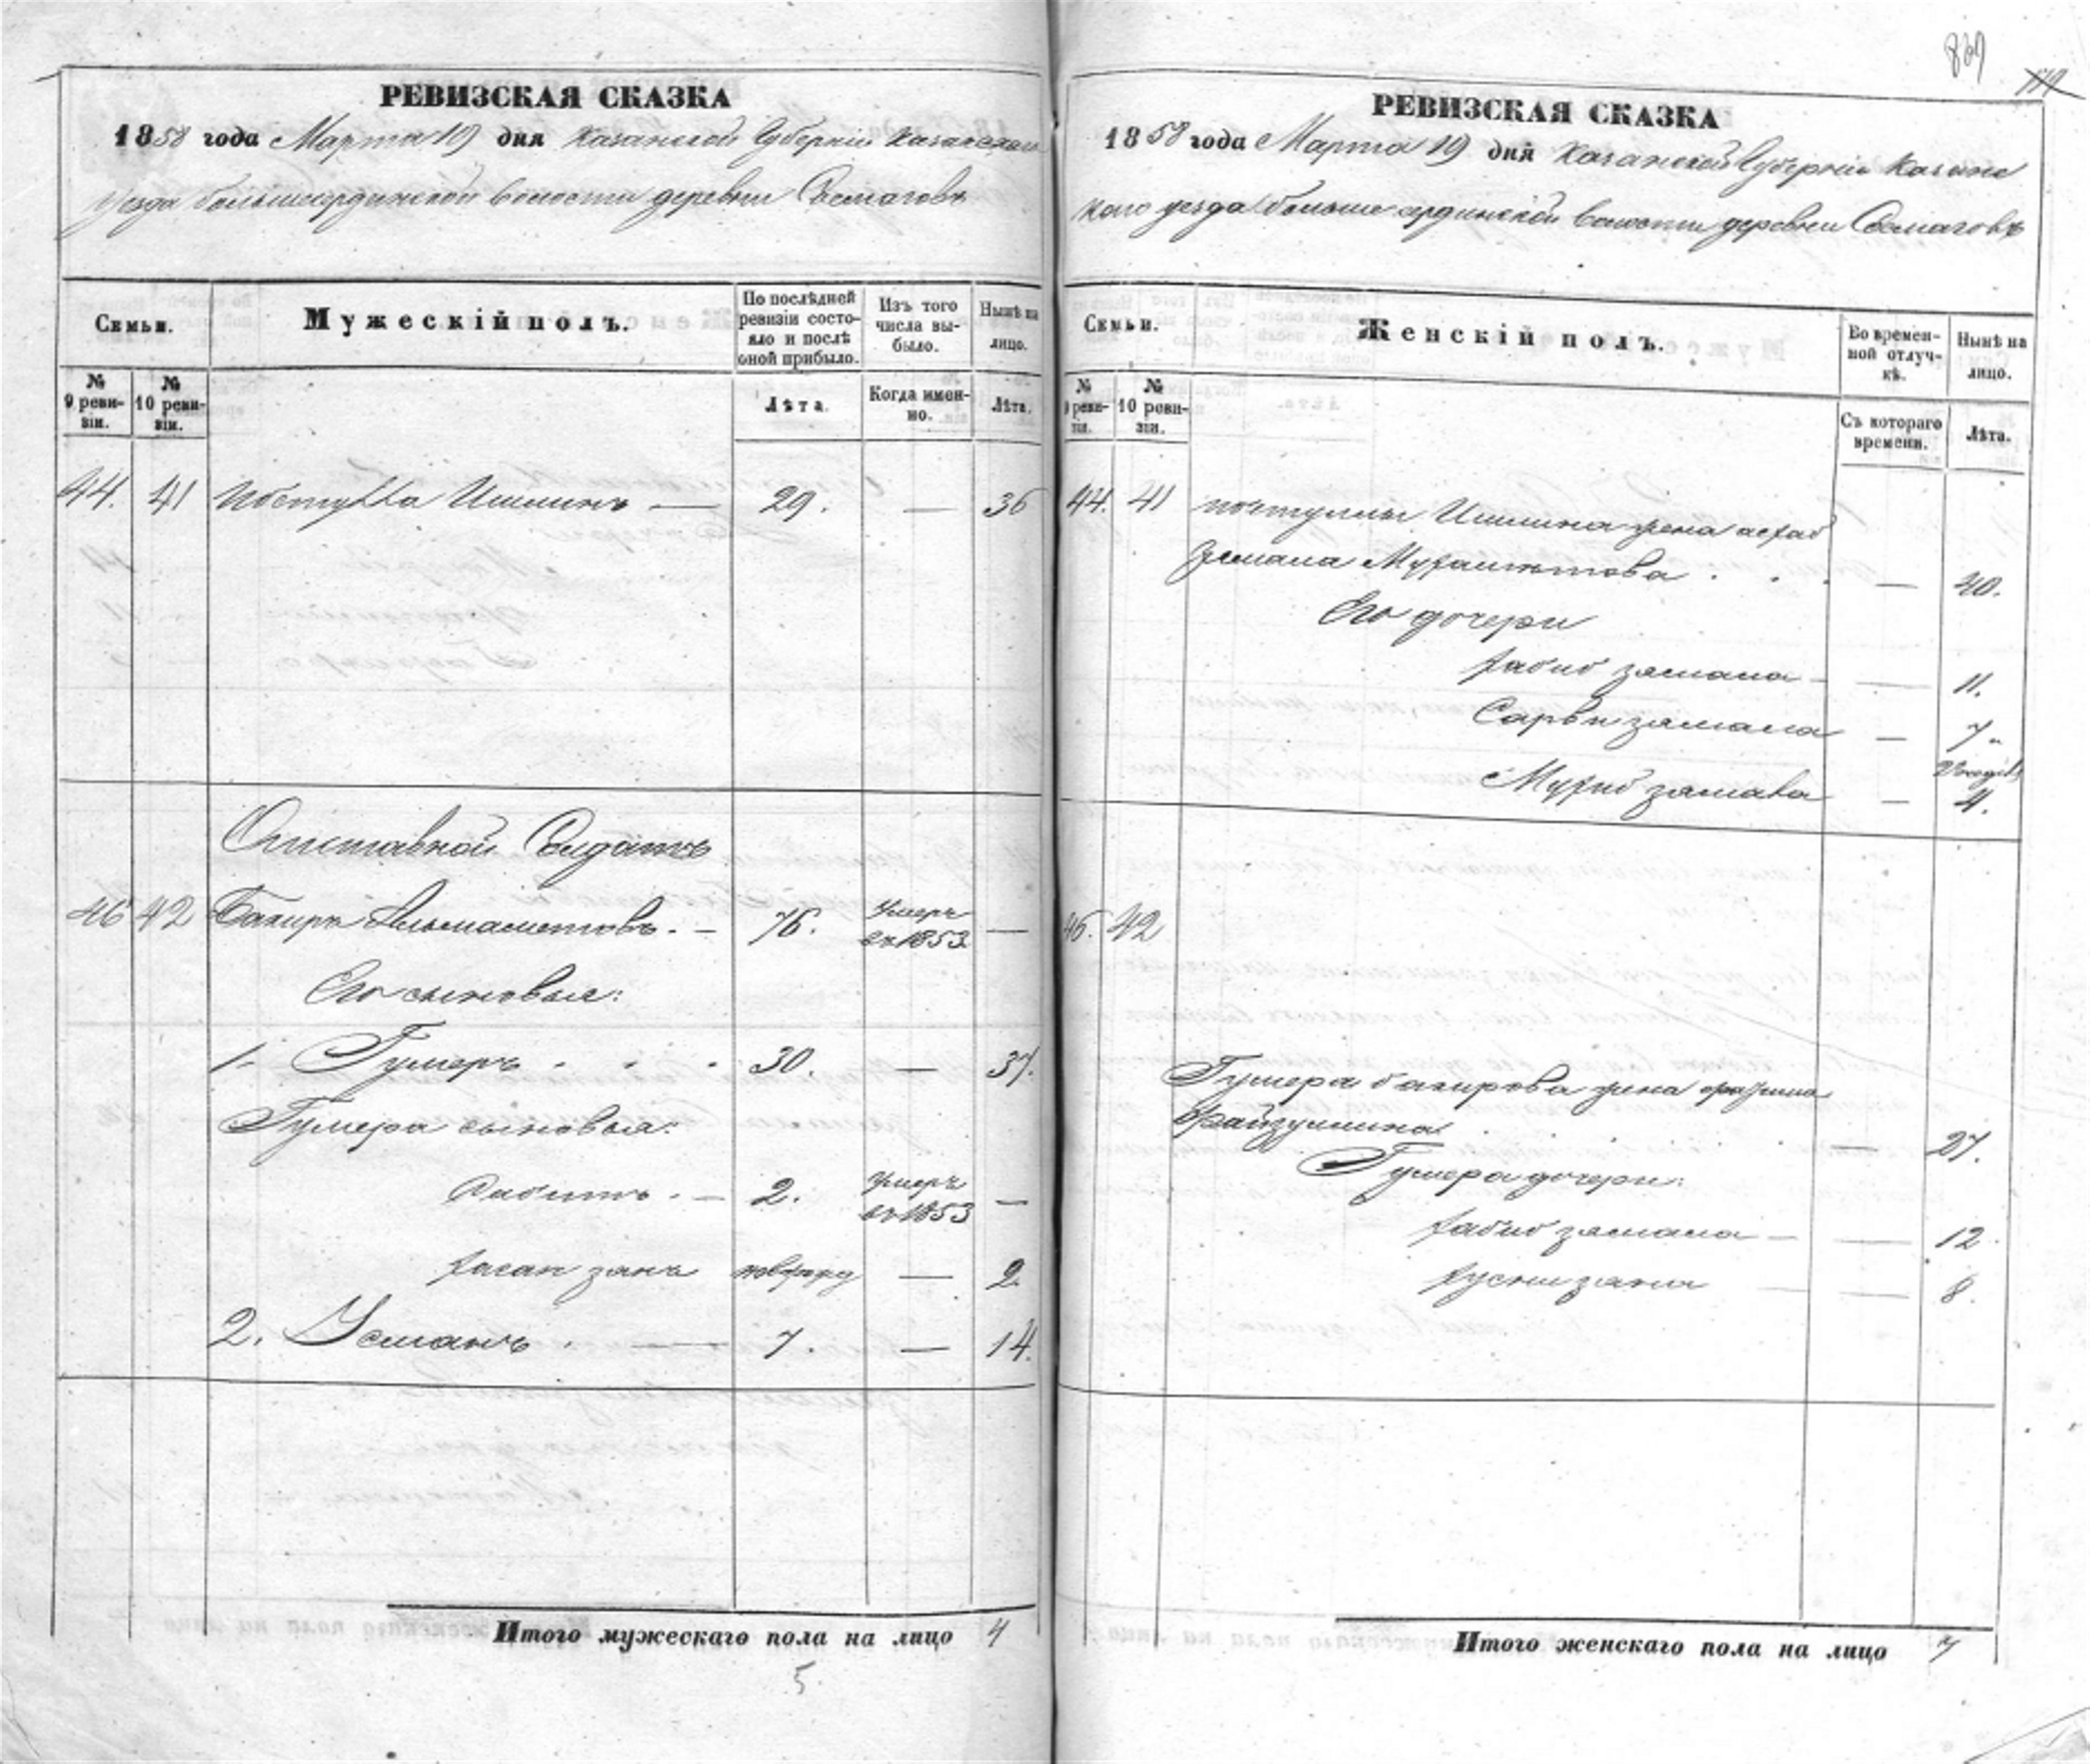 РЕВИЗСКАЯ СКАЗКА
1858 года Марта 19 дня Казанской Губерніи Казанскаго
уезда большесердинской волости деревни
Семьи.
Мужескій полъ.
По послѣдней ревизіи состояло и послѣ оной прибыло.
Изъ того числа выбыло.
Нынѣ на лицо.
№ 9 ревизіи.
№ 10 ревизіи.
Лѣта.
Когда именно.
Лѣта.
44. 41 Ишминъ — 29. — 36
Отставной Солдатъ
46 42 Бакиръ Альмаметовъ. — 76. Умеръ въ 1853 —
Его сыновья:
1. Гумеръ . . . 30. — 37.
Гумера сыновья:
Сабитъ. — 2. Умеръ въ 1853 —
Хасан зянъ — 2.
2. Усманъ . — 7. — 14.
Итого мужескаго пола на лицо 4
5
869
РЕВИЗСКАЯ СКАЗКА
1858 года Марта 19 дня Казанской Губерніи Казанс
каго уезда больше сердинской волости деревни
Семьи.
Женскій полъ.
Во временной отлучкѣ.
Нынѣ на лицо.
№ 9 ревизіи.
№ 10 ревизіи.
Съ котораго времени.
Лѣта.
44. 41 Ишмина жена
Мухаметова . . . — 40.
Его дочери
Хабиб зямала — — 11.
Сарви зямала — 7.
Мухиб зямала — 4.
46. 42
Гумера бакирова жена
Файзуллина — 27.
Гумера дочери:
Хабиб зямала — — 12
Хусни зяна — 8.
Итого женскаго пола на лицо 7